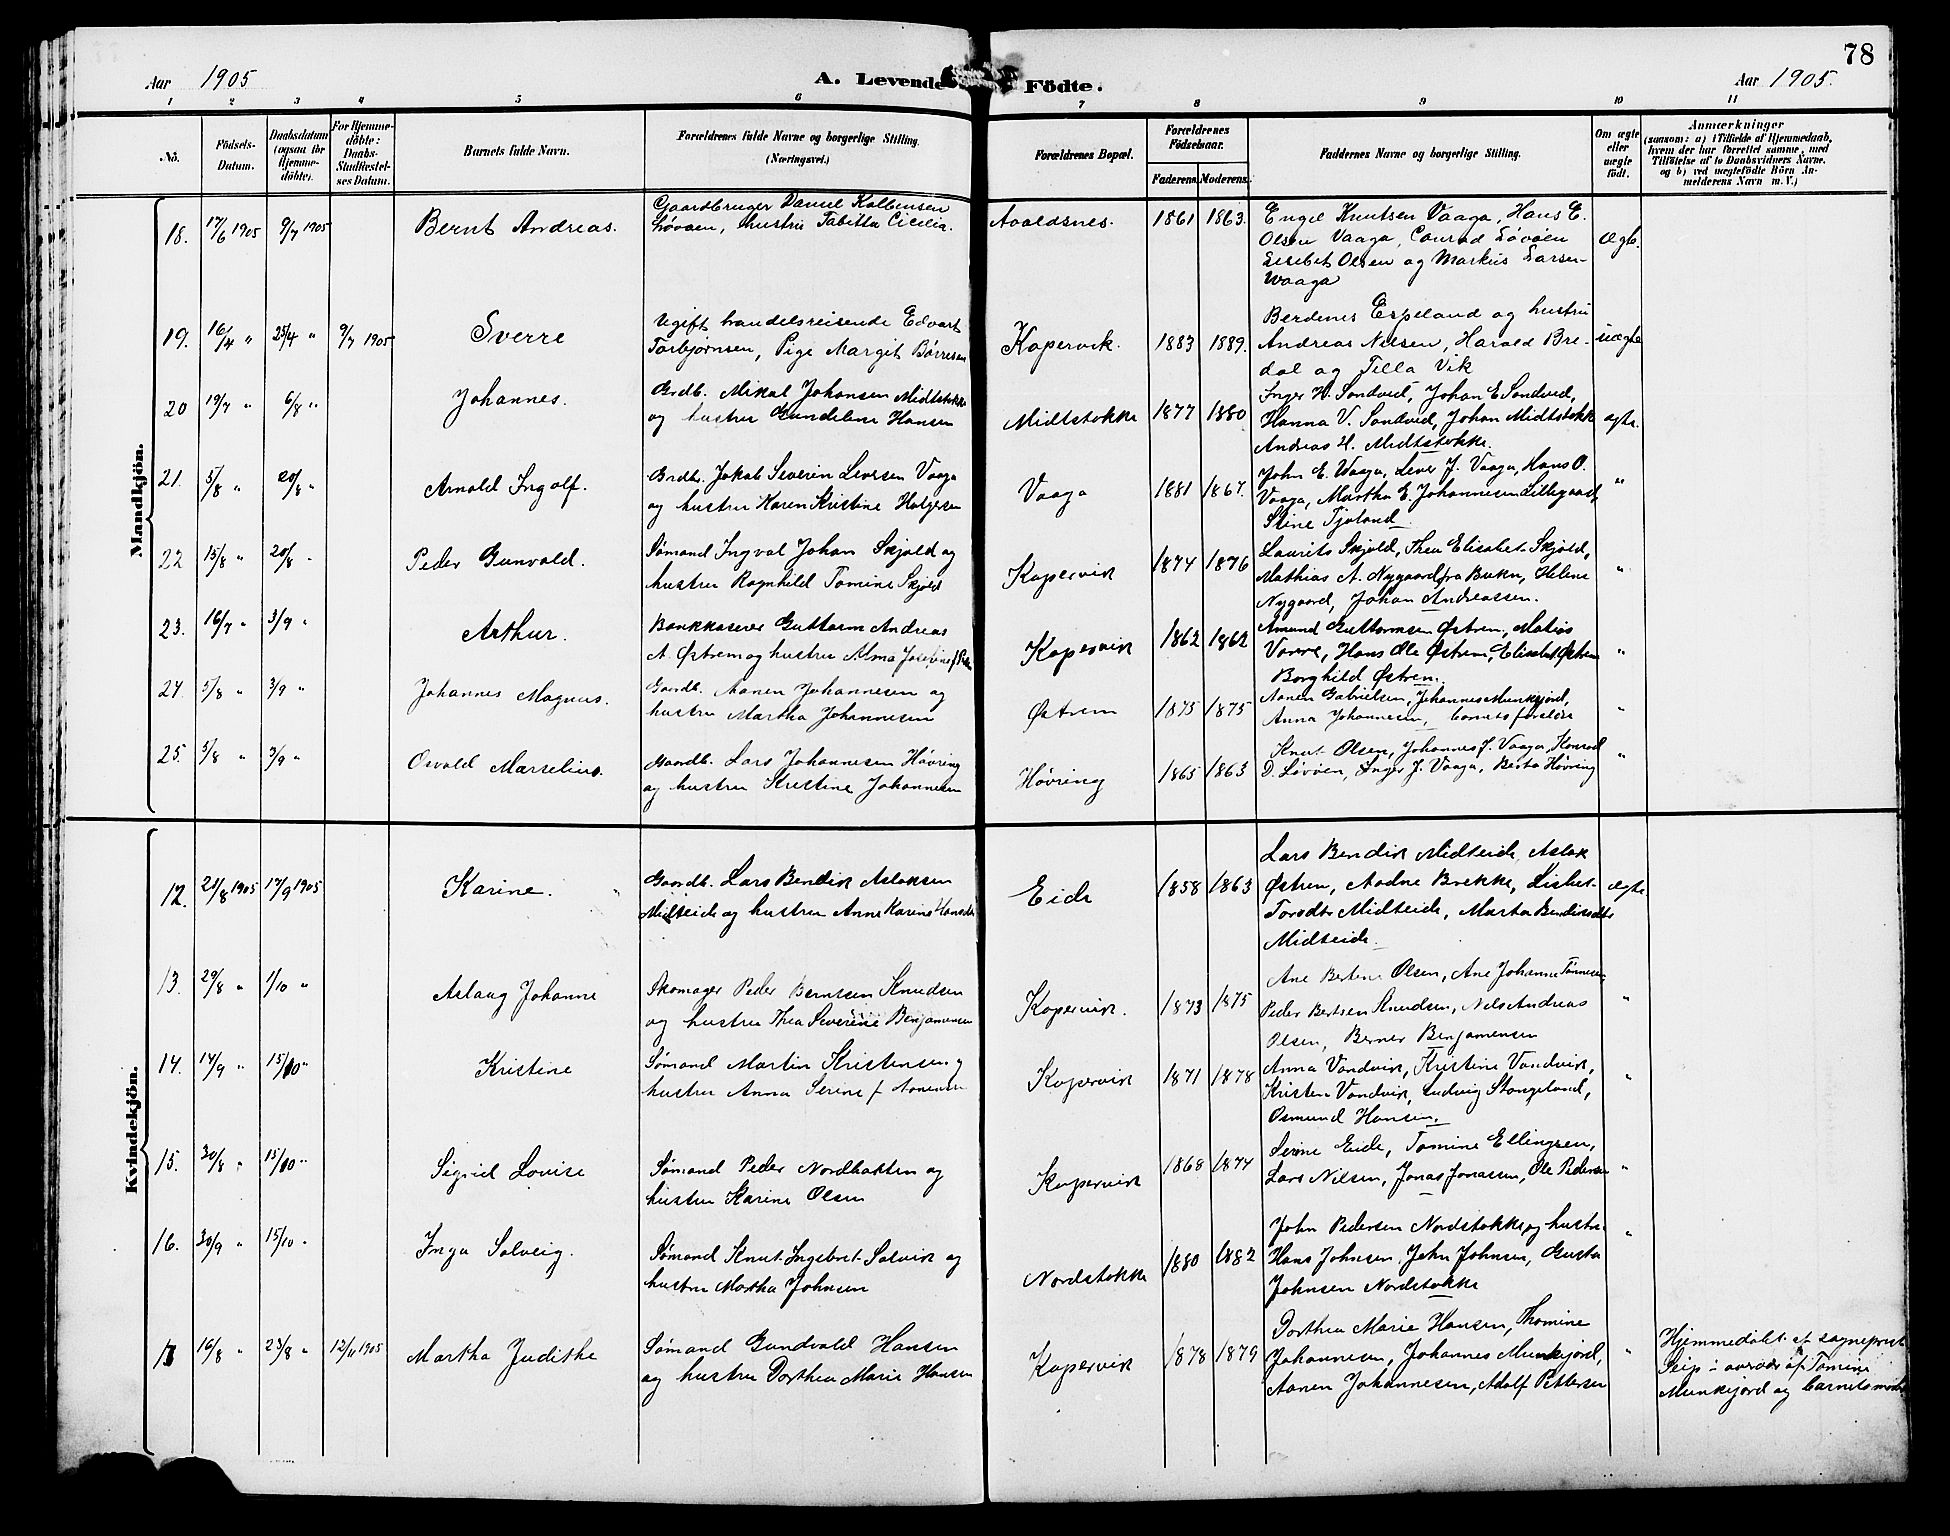 78
Aar 1905
A. Levende Födte.
Aar 1905.
1 2 3 4 5 6 7 8 9 10 11
Nô.
Födsels-Datum.
Daabsdatum (ogsaa for Hjemmedöbte).
For Hjemmedöbte: Daabs-Stadfæstelses Datum.
Barnets fulde Navn.
Forældrenes fulde Navne og borgerlige Stilling.
(Næringsvei.)
Forældrenes Bopæl.
Forældrenes Födselsaar.
Faderens. Moderens.
Faddernes Navne og borgerlige Stilling.
Om ægte eller uægte födt.
Anmærkninger
(saasom: a) i Tilfælde af Hjemmedaab, hvem der har forrettet samme, med Tilföielse af to Daabsvidners Navne, og b) ved uægtefödte Börn Anmelderens Navn m. V.)
Mandkjön.
18. 17/6 1905 9/7 1905 Bernt Andreas. Gaardbruger Daniel Kolbensen
Løvøen, hustru Tabitta Cicilia. Avaldsnes. 1861 1863. Engel Knutsen Vaaga, Hans E.
Olsen Vaaga, Conrad Løvøen
Lisebet Olsen og Markus Larsen
Waaga
Ægte.
19. 16/4 " 23/4 " 9/7 1905 Sverre Ugift handelsreisende Edvart
Torbjørnsen, Pige Margit Børresen Kopervik. 1883 1889. Berdenes Espeland og hustru
Andreas Nilsen, Harald Bredal og Tilla Vik
uægte
20 19/7 " 6/8 " Johannes. Grdb. Mikal Johansen Midtstokke
og hustru Gundeline Hansen Midtstokke 1877 1880 Inger H. Sandved, Johan E Sandved,
Hanna V. Sandved, Johan Midtstokke
Andreas H. Midtstokke.
ægte.
21. 5/8 " 20/8 " Arnold Ingolf. Grdbr. Jakob Severin Leversen Vaaga
og hustru Karen Kristine Holgersen Vaaga 1881 1867. John E. Waaga, Lever J. Vaaga, Hans O.
Vaaga, Martha E. Johannesen Lillegaard,
Stine Tjoland
"
22 13/8 " 20/8 " Peder Gunvald. Sømand Ingval Johan Skjold og
hustru Ragnhild Tomine Skjold Kopervik 1874 1876 Laurits Skjold, Thea Elisabet Skjold,
Mathias A. Nygaard fra Bukn, Helene
Nygaard, Johan Andreassen.
"
23. 16/7 " 3/9 " Arthur. Bankkaserer Guttorm Andreas
A. Østrem og hustru Alma Josefine Kopervik 1862 1862 Amund Guttormsen Østrem, Matias
Vorre, Hans Ole Østrem, Elisabet Østrem
Borghild Østrem.
"
24. 5/8 " 3/9 " Johannes Magnus. Gaardb. Aanen Johannesen og
hustru Martha Johannesen Østrem 1875 1875 Aanen Gabrielsen, Johannes Munkejord,
Anna Johannesen, barnets forældre
"
25. 5/8 " 3/9 " Osvald Marselius. Gaardb. Lars Johannesen Høvring
og hustru Kristine Johannesen Høvring 1865 1863 Knut Olsen, Johannes J. Vaaga, Konrad
D. Løvøen, Inger J. Vaaga, Berta Høvring
"
Kvindekjön.
12. 21/8 1905 17/9 1905 Karine. Gaardb. Lars Bendik Aslaksen
Midteide og hustru Anne Karine Hansdtr Eide 1858 1863 Lars Bendik Midteide, Aslak
Østrem, Aadne Brekke, Lisbet
Torsdtr Midteide, Marta Bendiksdtr
Midteide.
Ægte
13. 29/8 " 1/10 " Aslaug Johanne Skomager Peder Berntsen Knudsen
og hustru Thea Severine Benjamensen Kopervik. 1873 1875 Ane Bertine Olsen, Ane Johanne Tønnesen
Peder Bertsen Knudsen, Nels Andreas
Olsen, Berner Benjamensen
"
14. 14/9 " 15/10 " Kristine Sømand Martin Kristensen og
hustru Anna Serine f. Kopervik 1871 1878 Anna Vandvik, Kristine Vandvik,
Kristen Vandvik, Ludvig Stangeland,
Osmund Hansen.
"
15. 30/8 " 15/10 " Sigrid Lovise Sømand Peder Nordbakken og
hustru Karine Olsen Kopervik 1868 1874 Serine Eide, Tomine Ellingsen,
Lars Nilsen, Jonas Jonassen, Ole Pedersen
"
16. 30/9 " 15/10 " Inga Solveig. Sømand Knut Ingebret Solvik og
hustru Martha Johnsen Nordstokke 1880 1882 John Pedersen Nordstokke og hustru
Hans Johnsen, John Johnsen, Gusta
Johnsen Nordstokke
"
17 16/8 " 23/8 " 12/11 1905 Martha Judithe Sømand Gundvald Hansen
og hustru Dorthea Marie Hansen Kopervik 1878 1879 Dorthea Marie Hansen, Thomine
Johannesen, Johannes Munkejord,
Aanen Johannesen, Adolf Pettersen
" Hjemmedøbt af sogneprest
Seip i overvær af Tomine
Munkejord og barnets moder